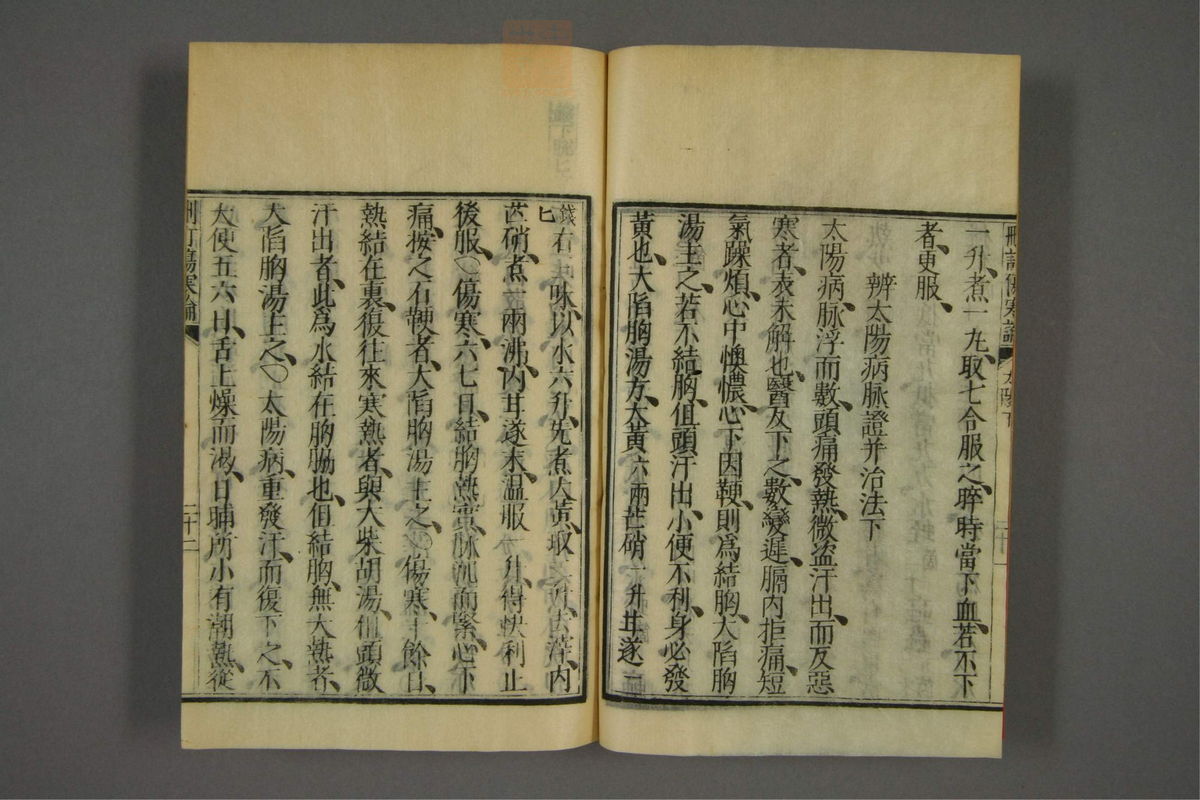 刪訂傷寒論 太陽下
一升、煮一丸、取七合服之、晬時當下血、若不下
者、更服、
辨太陽病脉證并治法下
太陽病、脉浮而數、頭痛發熱、微盗汗出、而反惡
寒者、表未解也、醫反下之、數變遲、膈内拒痛、短
氣躁煩、心中懊憹、心下因鞕、則爲結胸、大陷胸
湯主之、若不結胸、但頭汗出、小便不利、身必發
黃也、大陷胸湯方、大黃六兩芒硝一升甘遂一
錢匕右三味、以水六升、先煮大黃、取二升、去滓、内
芒硝、煮一兩沸、内甘遂末、温服一升、得快利止
後服、○傷寒六七日、結胸熱實、脉沉而緊、心下
痛、按之石鞕者、大陷胸湯主之、○傷寒十餘日、
熱結在裏、復往來寒熱者、與大柴胡湯、但頭微
汗出者、此爲水結在胸脇也、但結胸、無大熱者、
大陷胸湯主之、○太陽病、重發汗、而復下之、不
大便五六日、舌上燥而渴、日晡所小有潮熱、從
刪訂傷寒論 二十二